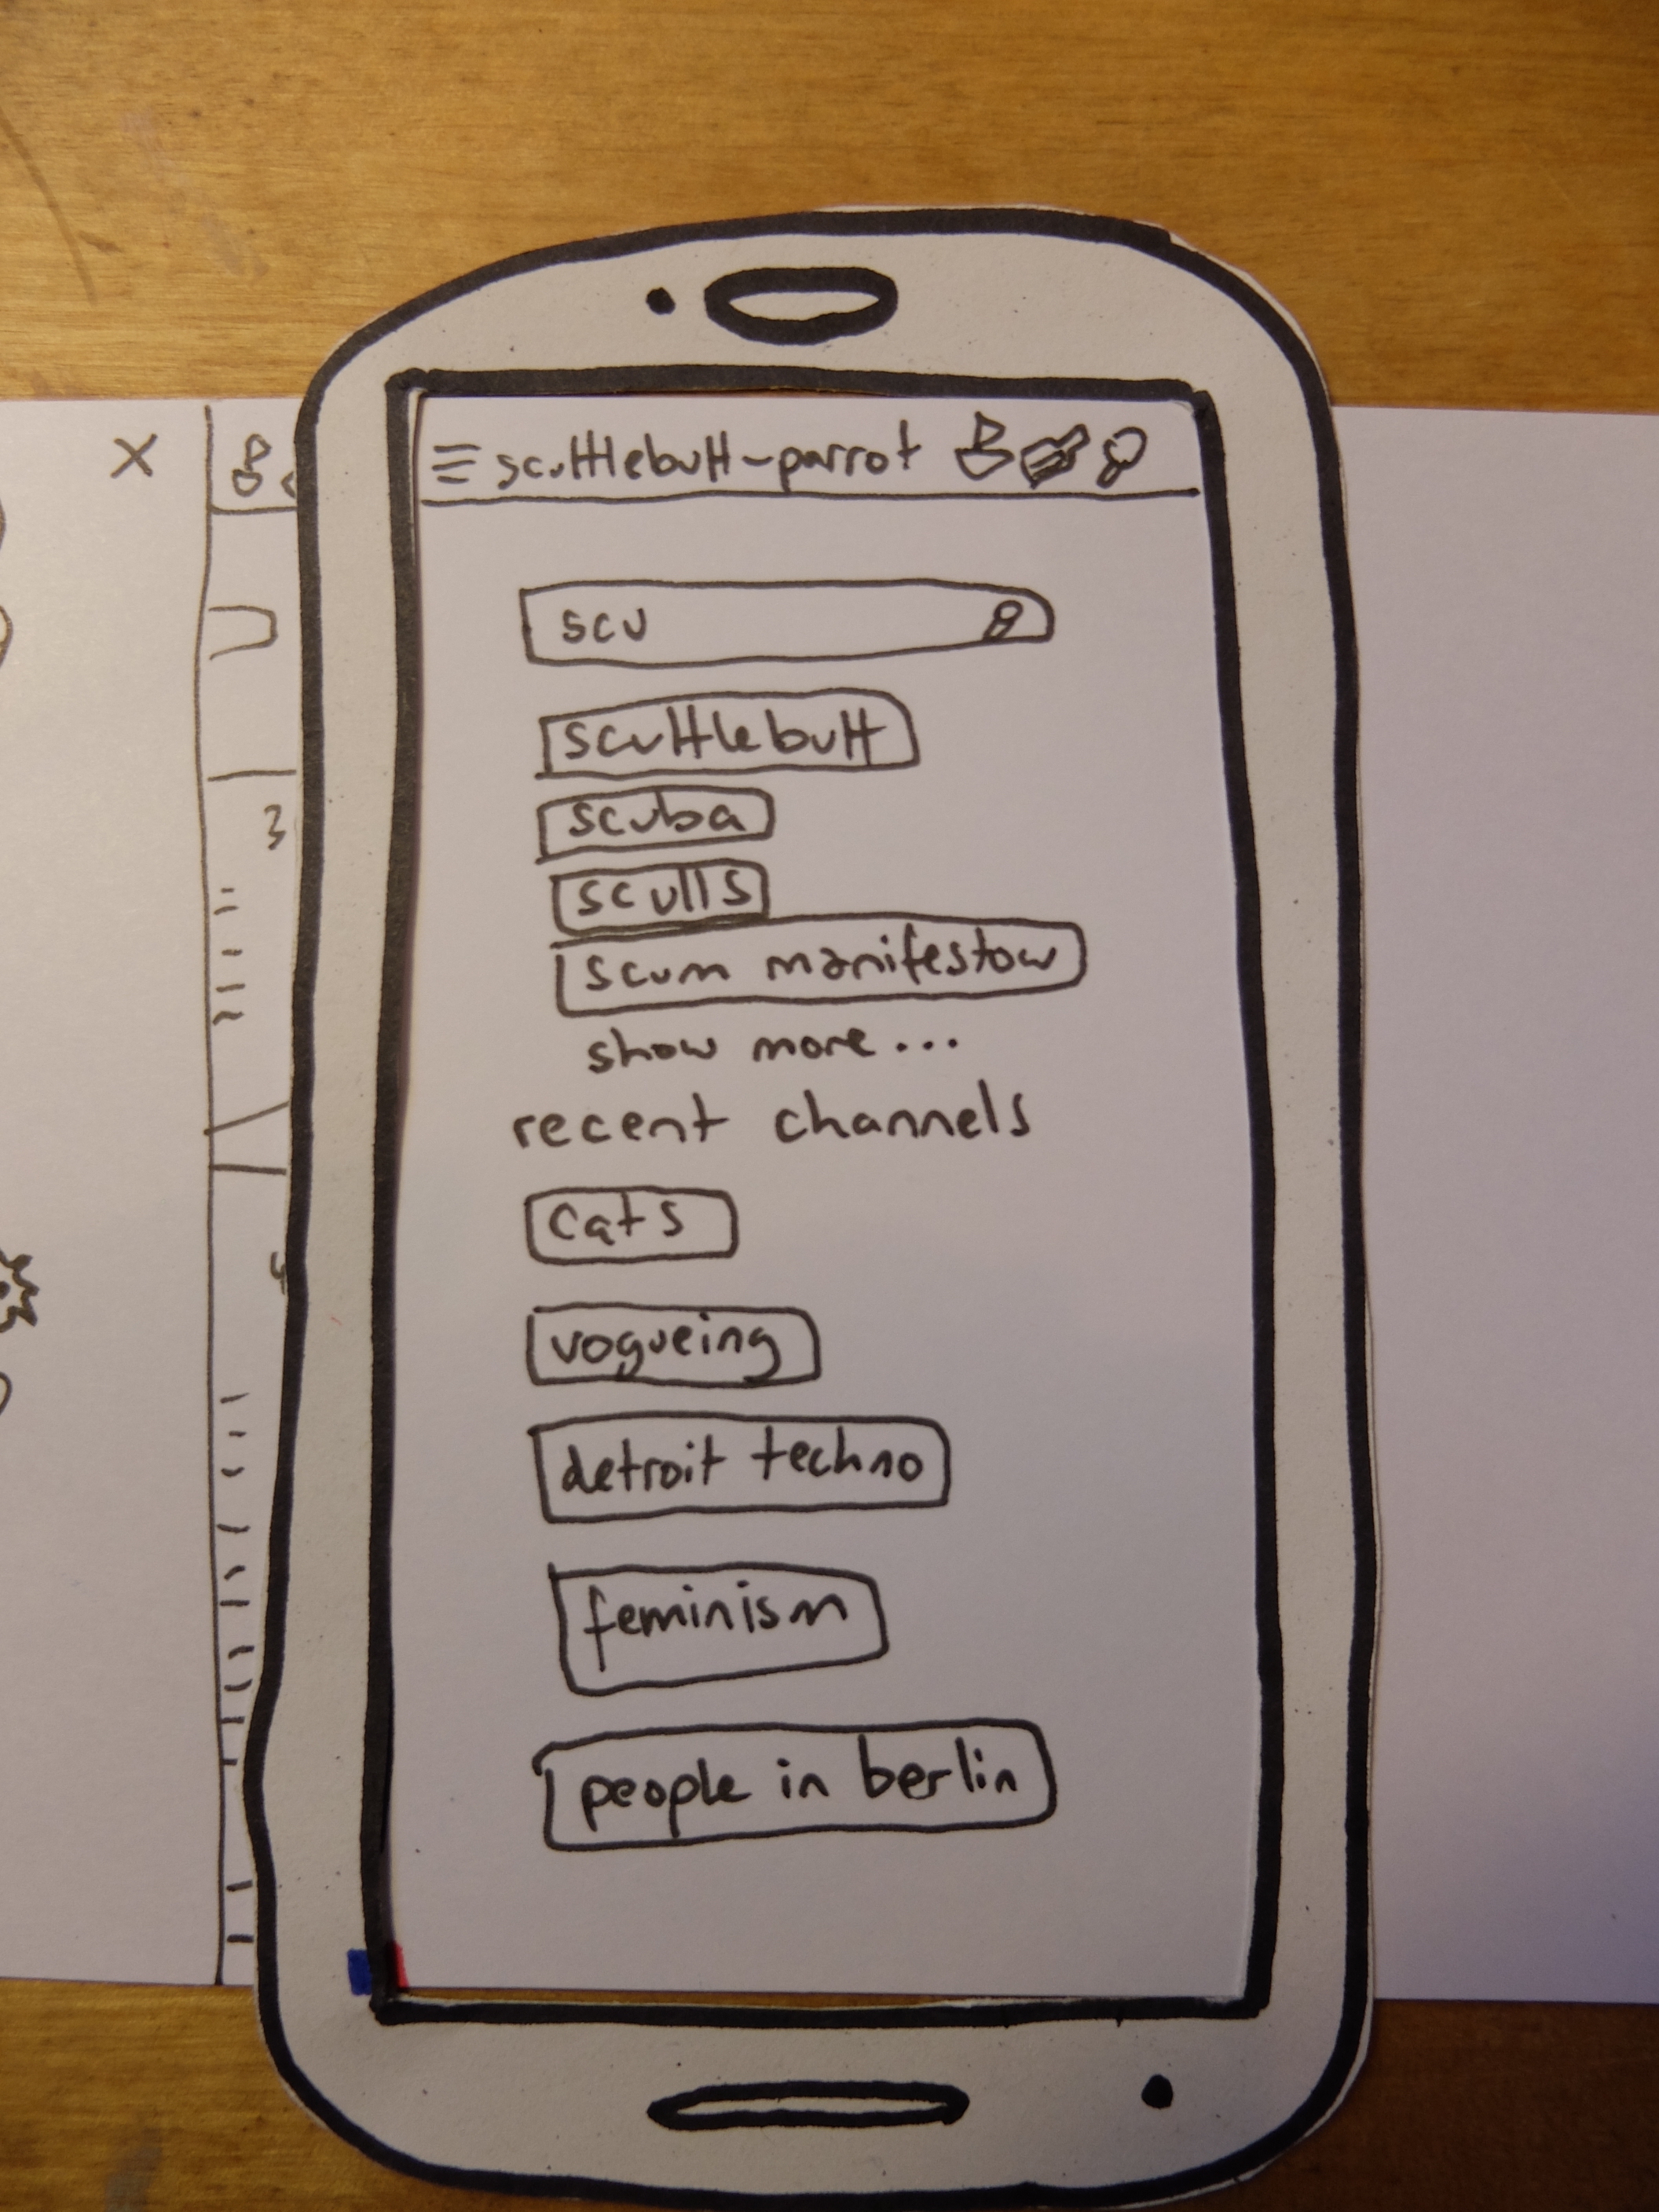 scuttlebutt-parrot
scu
scuttlebutt
scuba
sculls
scum manifestow
show more...
recent channels
cats
vogueing
detroit techno
feminism
people in berlin
X
3